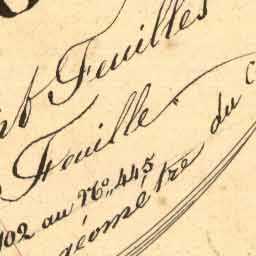 Feuilles
Feuille
102 au No. 445
géomètre du